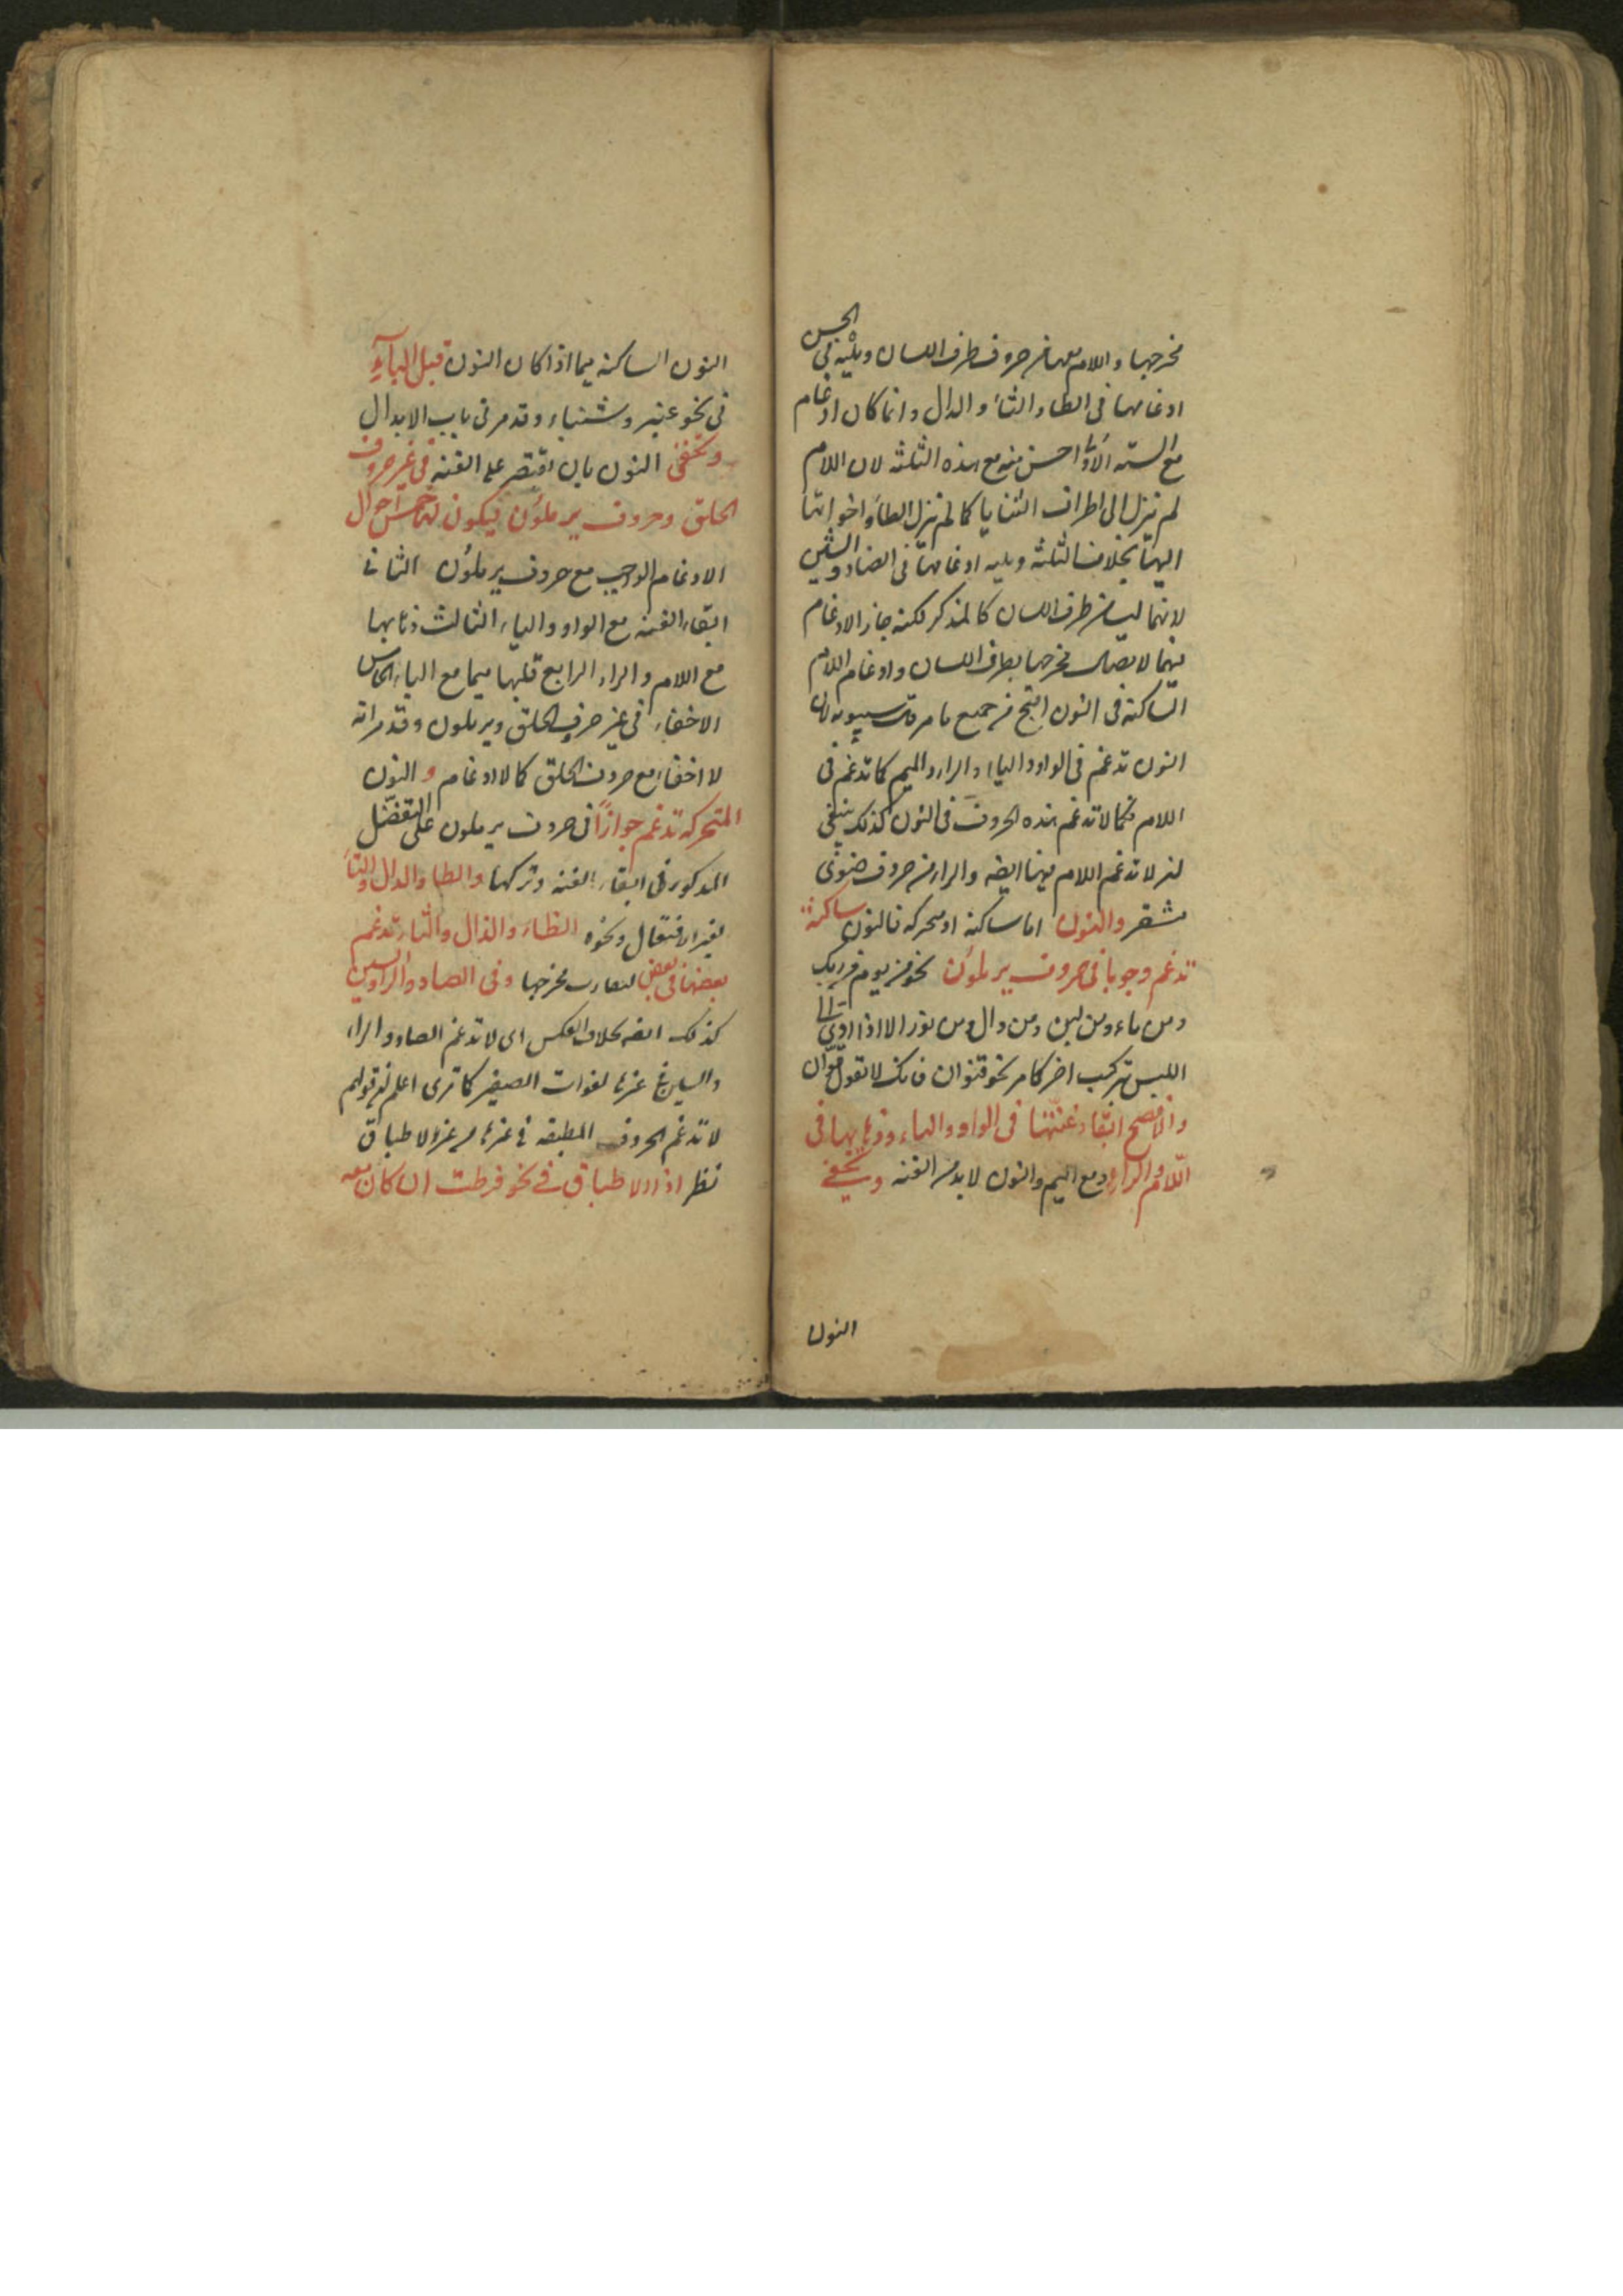 مخرجها واللام معها من حروف طرف اللسان ويليه في الحسن
ادغامها في الظاء والثاء والذال وانما كان ادغام
مع الستة الاول احسن منه مع هذه الثلثة لان اللام
لم تنزل الى اطراف الثنايا كما لم تنزل الطاء واخواتها
اليها بخلاف الثلثة ويليه ادغامها في الضاد والشين
لانهما ليسا من طرف اللسان كالمذكر لكنه جاز الادغام
فيهما لاتصال مخرجها بطرف اللسان وادغام اللام
الساكنة في النون اقبح من جميع ما مر قال سيبويه لان
النون تدغم في الواو والياء والراء والميم كما تدغم في
اللام فكما لا تدغم هذه الحروف في النون كذلك ينبغي
ان لا تدغم اللام فيها ايضه والراء من حروف ضوى
مشفر والنون اما ساكنة او متحركة فالنون ساكنة
تدغم وجوبا في حروف يرملون نحو من يوم من ربك
ومن ماء ومن لبن ومن وال ومن نور الا اذا ادى الى
اللبس بتركيب اخر كما مر نحو قنوان فانك لا تقول قوّان
والافصح ابقاء غنتها في الواو والياء وذهابها في
اللام والراء ومع الميم والنون لا بد من الغنة و
النون
النون الساكنة ميما اذا كان النون قبل الباء
في نحو عنبر وشنباء وقد مر في باب الابدال
وتخفى النون بان يقتصر على الغنة في غير حروف
الحلق وحروف يرملون فيكون لها خمس احوال
الادغام الواجب مع حروف يرملون الثاني
ابقاء الغنة مع الواو والياء الثالث ذهابها
مع اللام والراء الرابع قلبها ميما مع الباء الخامس
الاخفاء في غير حرف الحلق ويرملون وقد مر انه
لا اخفاء مع حروف الحلق كما لا ادغام و النون
المتحركة تدغم جوازا في حروف يرملون على التفصيل
المذكور في ابقاء الغنة وتركها والطاء والدال والتاء
لغير افتعال ونحوه الظاء والذال والثاء تدغم
بعضها في بعض لتقارب مخرجها وفي الصاد والزا والسين
كذلك ايضه بخلاف العكس اى لا تدغم الصاد والزاء
والسين في غيرها لفوات الصفير كما ترى اعلم ان قولهم
لا تدغم الحروف المطبقة في غيرها من غير الاطباق
نظر اذ الاطباق في نحو فرطت ان كان معه